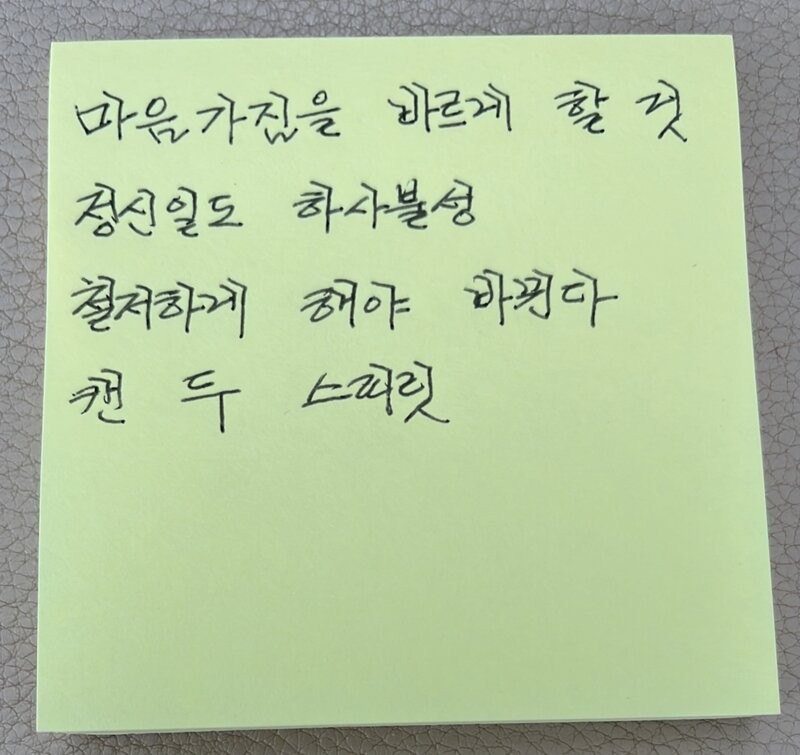 마음가짐을 바르게 할 것
정신일도 하사불성
철저하게 해야 바뀐다
캔 두 스피릿